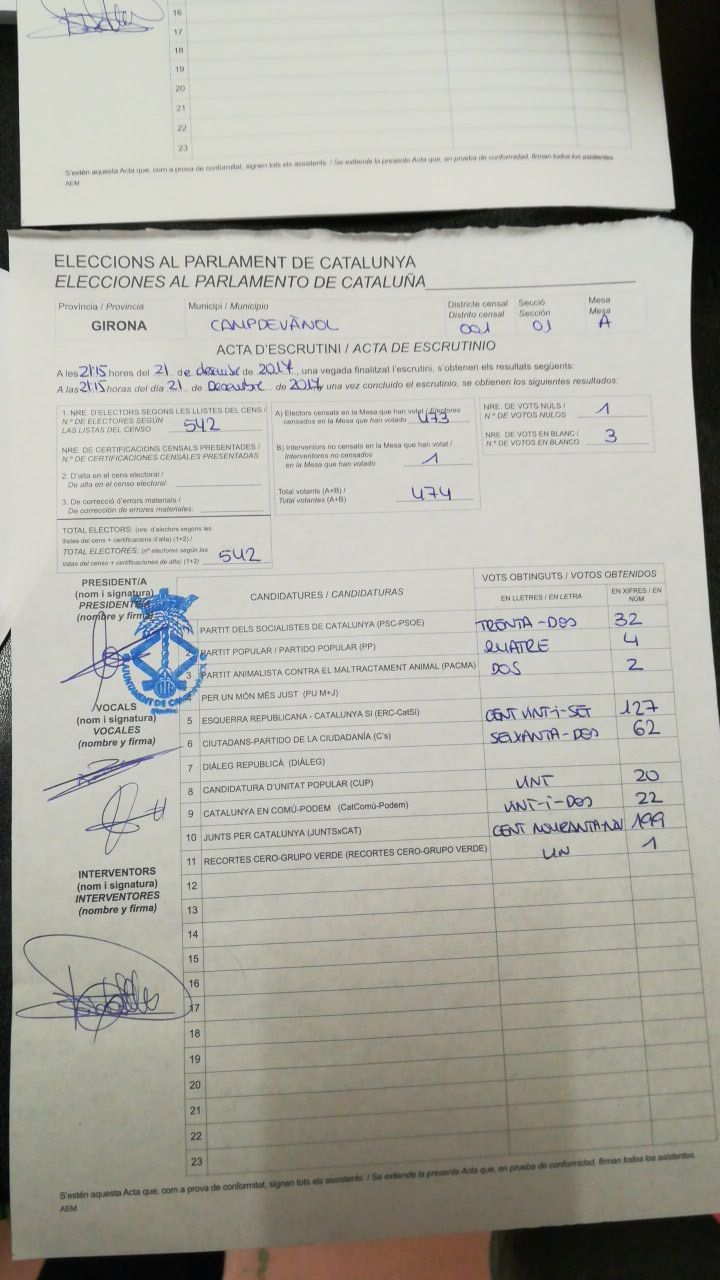 16
17
18
19
20
21
22
23
S'estén aquesta Acta que, com a prova de conformitat, signen tots els assistents. / Se extiende la presente Acta que, en prueba de conformidad, firman todos los asistentes
AEM
ELECCIONS AL PARLAMENT DE CATALUNYA
ELECCIONES AL PARLAMENTO DE CATALUÑA
Província / Provincia Municipi / Municipio Districte censal Secció Mesa
Distrito censal Sección Mesa
GIRONA CAMPDEVÀNOL 001 01 A
ACTA D'ESCRUTINI / ACTA DE ESCRUTINIO
A les 21:15 hores del 21 de desembre de 2017, una vegada finalitzat l'escrutini, s'obtenen els resultats següents:
A las 21:15 horas del día 21 de Desembre de 2017, una vez concluido el escrutinio, se obtienen los siguientes resultados:
1. NRE. D'ELECTORS SEGONS LES LLISTES DEL CENS /
N.º DE ELECTORES SEGÚN
LAS LISTAS DEL CENSO 542
NRE. DE CERTIFICACIONS CENSALS PRESENTADES /
N.º DE CERTIFICACIONES CENSALES PRESENTADAS
2. D'alta en el cens electoral /
De alta en el censo electoral:
3. De correcció d'errors materials /
De corrección de errores materiales:
TOTAL ELECTORS: (nre. d'electors segons les
llistes del cens + certificacions d'alta) (1+2) /
TOTAL ELECTORES: (nº electores según las
listas del censo + certificaciones de alta) (1+2) 542
A) Electors censats en la Mesa que han votat / Electores
censados en la Mesa que han votado 473
B) Interventors no censats en la Mesa que han votat /
Interventores no censados
en la Mesa que han votado 1
Total votants (A+B) /
Total votantes (A+B) 474
NRE. DE VOTS NULS /
N.º DE VOTOS NULOS 1
NRE. DE VOTS EN BLANC /
N.º DE VOTOS EN BLANCO 3
PRESIDENT/A
(nom i signatura)
PRESIDENTE/A
(nombre y firma)
AJUNTAMENT DE
VOCALS
(nom i signatura)
VOCALES
(nombre y firma)
INTERVENTORS
(nom i signatura)
INTERVENTORES
(nombre y firma)
CANDIDATURES / CANDIDATURAS VOTS OBTINGUTS / VOTOS OBTENIDOS
EN LLETRES / EN LETRA EN XIFRES / EN NÚM.
PARTIT DELS SOCIALISTES DE CATALUNYA (PSC-PSOE) TRENTA-DOS 32
2 PARTIT POPULAR / PARTIDO POPULAR (PP) QUATRE 4
3 PARTIT ANIMALISTA CONTRA EL MALTRACTAMENT ANIMAL (PACMA) DOS 2
4 PER UN MÓN MÉS JUST (PU M+J)
5 ESQUERRA REPUBLICANA - CATALUNYA SÍ (ERC-CatSí) CENT VINT-I-SET 127
6 CIUTADANS-PARTIDO DE LA CIUDADANÍA (C's) SEIXANTA-DOS 62
7 DIÀLEG REPUBLICÀ (DIÀLEG)
8 CANDIDATURA D'UNITAT POPULAR (CUP) VINT 20
9 CATALUNYA EN COMÚ-PODEM (CatComú-Podem) VINT-I-DOS 22
10 JUNTS PER CATALUNYA (JUNTSxCAT) CENT NOURANTA-NOU 199
11 RECORTES CERO-GRUPO VERDE (RECORTES CERO-GRUPO VERDE) UN 1
12
13
14
15
16
17
18
19
20
21
22
23
S'estén aquesta Acta que, com a prova de conformitat, signen tots els assistents. / Se extiende la presente Acta que, en prueba de conformidad, firman todos los asistentes.
AEM